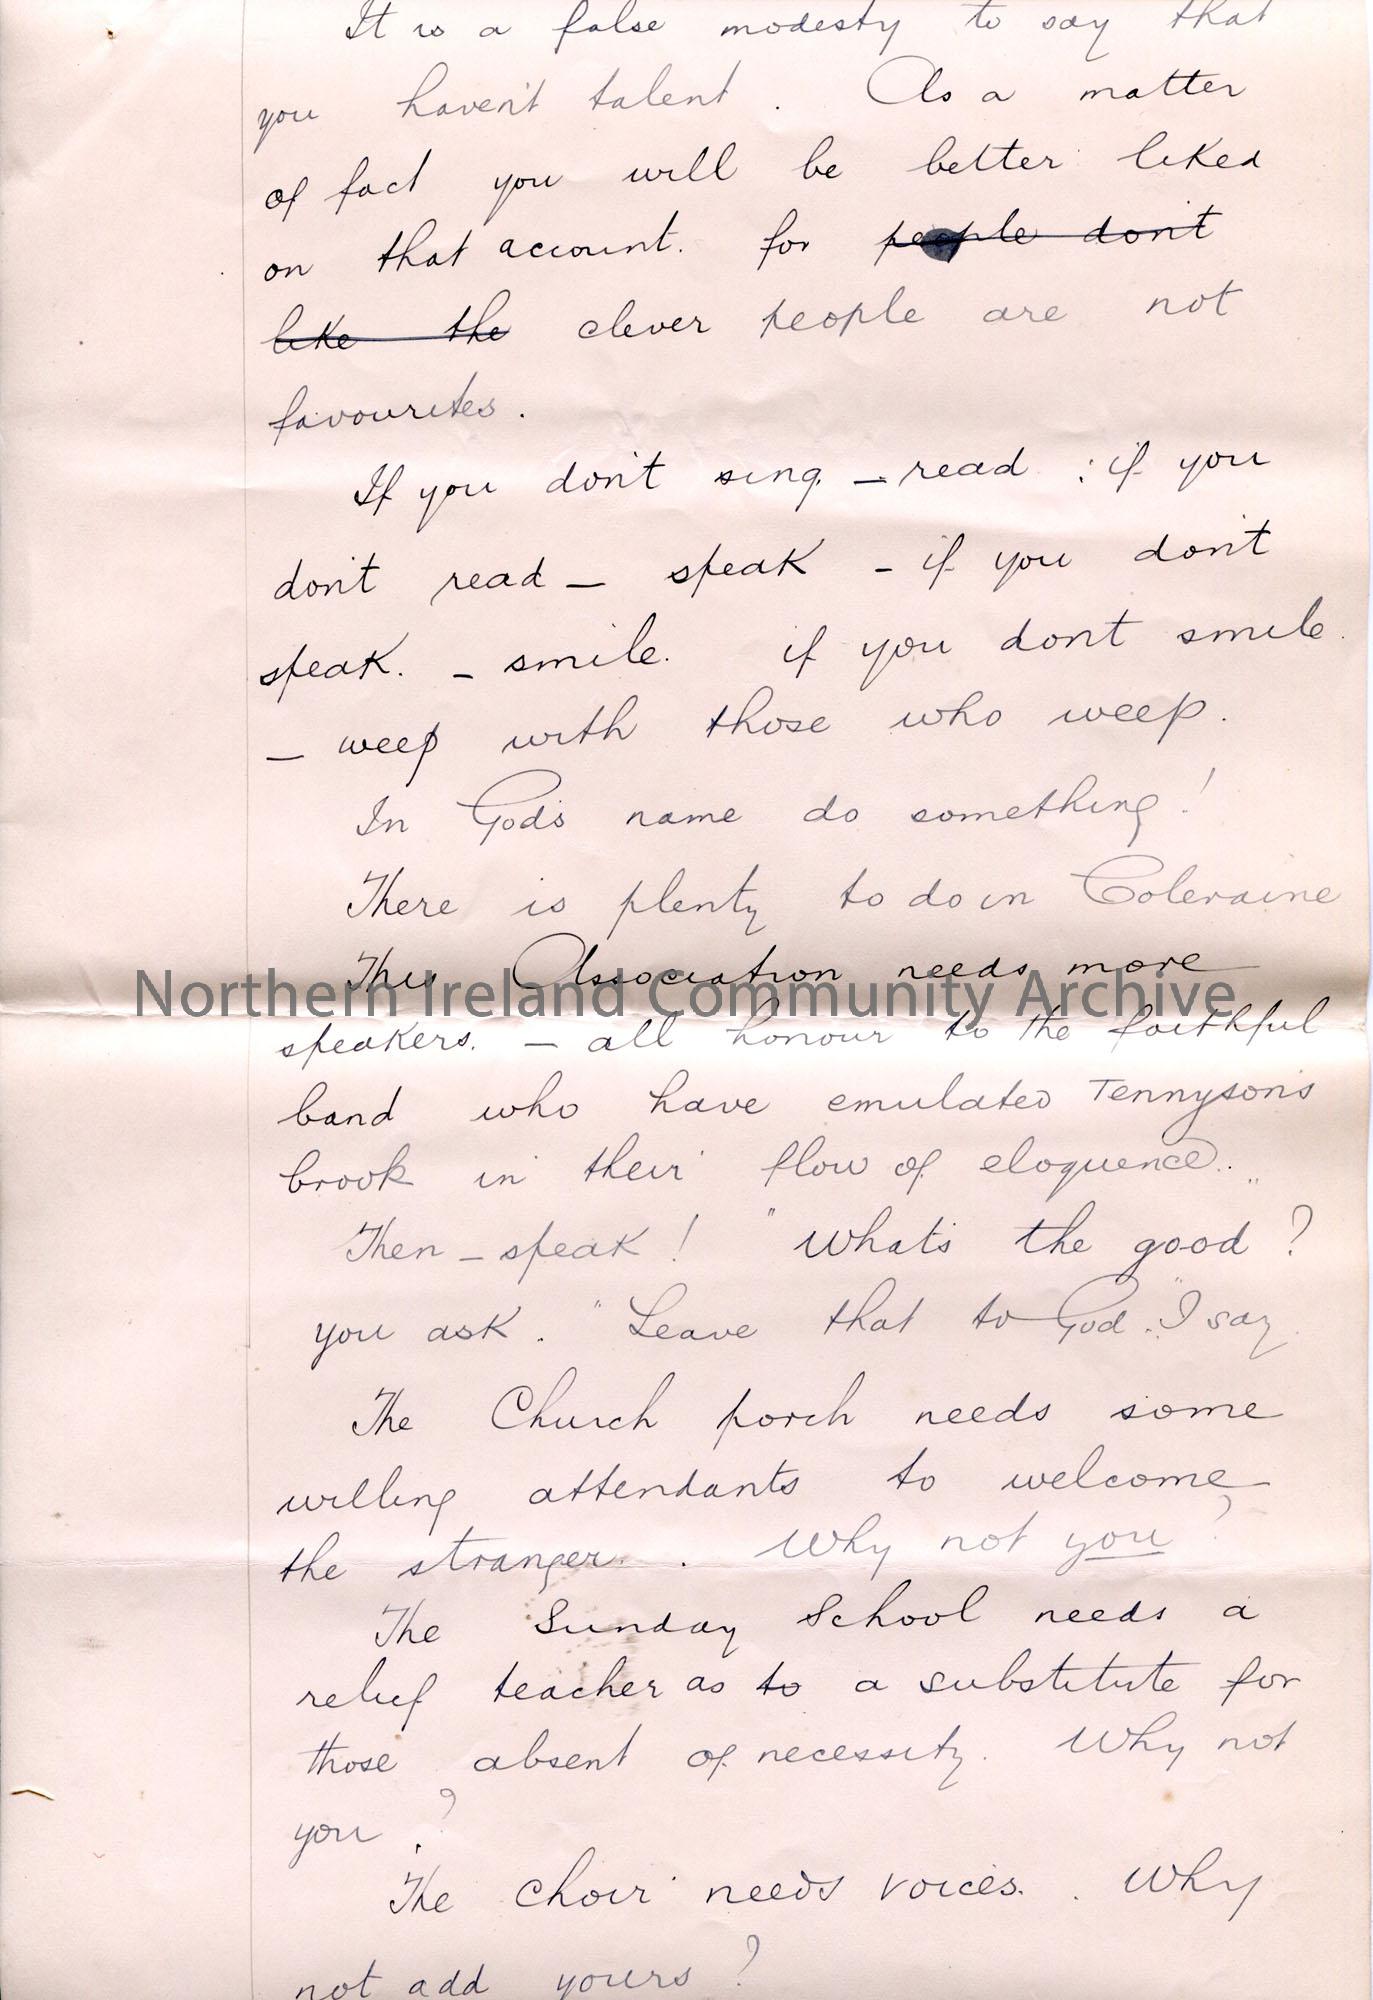 It is a false modesty to say that
you haven't talent. As a matter
of fact you will be better liked
on that account. for people don't
like the clever people are not
favourites.
If you don't sing – read : if you
don't read – speak – if you don't
speak. – smile. if you dont smile.
– weep with those who weep.
In God's name do something!
There is plenty to do in Coleraine
This Association needs more
Northern Ireland Community Archive
speakers. – all honour to the faithful
band who have emulated Tennyson's
brook in their flow of eloquence..
Then – speak! "What's the good?"
you ask. "Leave that to God." I say
The Church porch needs some
willing attendants to welcome
the stranger. . Why not you?
The Sunday School needs a
relief teacher as to a substitute for
those absent of necessity. Why not
you?
The Choir needs voices. . Why
not add yours?